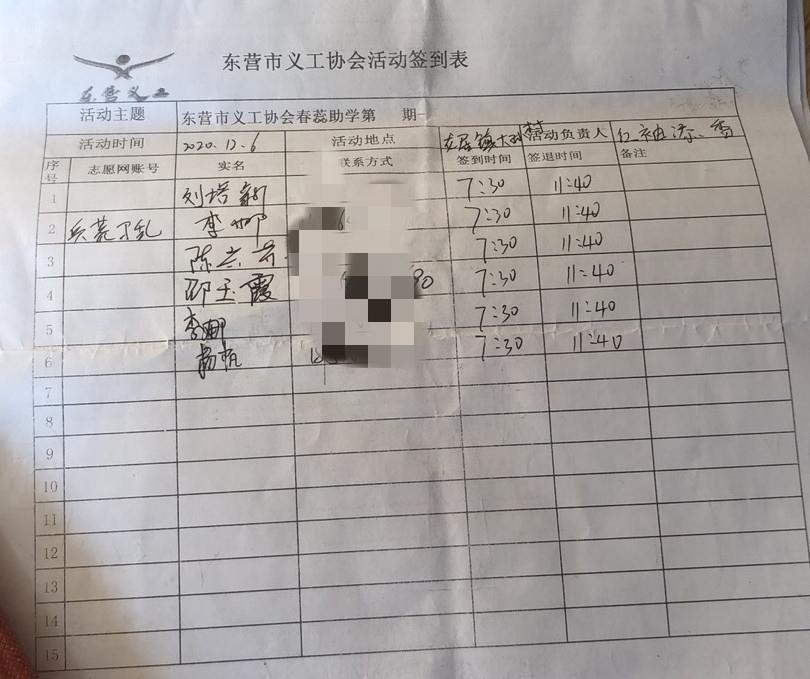 东营市义工协会活动签到表
东营义工
活动主题 东营市义工协会春蕊助学第 期
活动时间 2020.12.6 活动地点 镇大 活动负责人 红袖添香
序号 志愿网账号 实名 联系方式 签到时间 签退时间 备注
1 刘培 7:30 11:40
2 李娜 7:30 11:40
3 陈 7:30 11:40
4 邵玉霞 90 7:30 11:40
5 李娜 7:30 11:40
6 杨帆 7:30 11:40
7
8
9
10
11
12
13
14
15